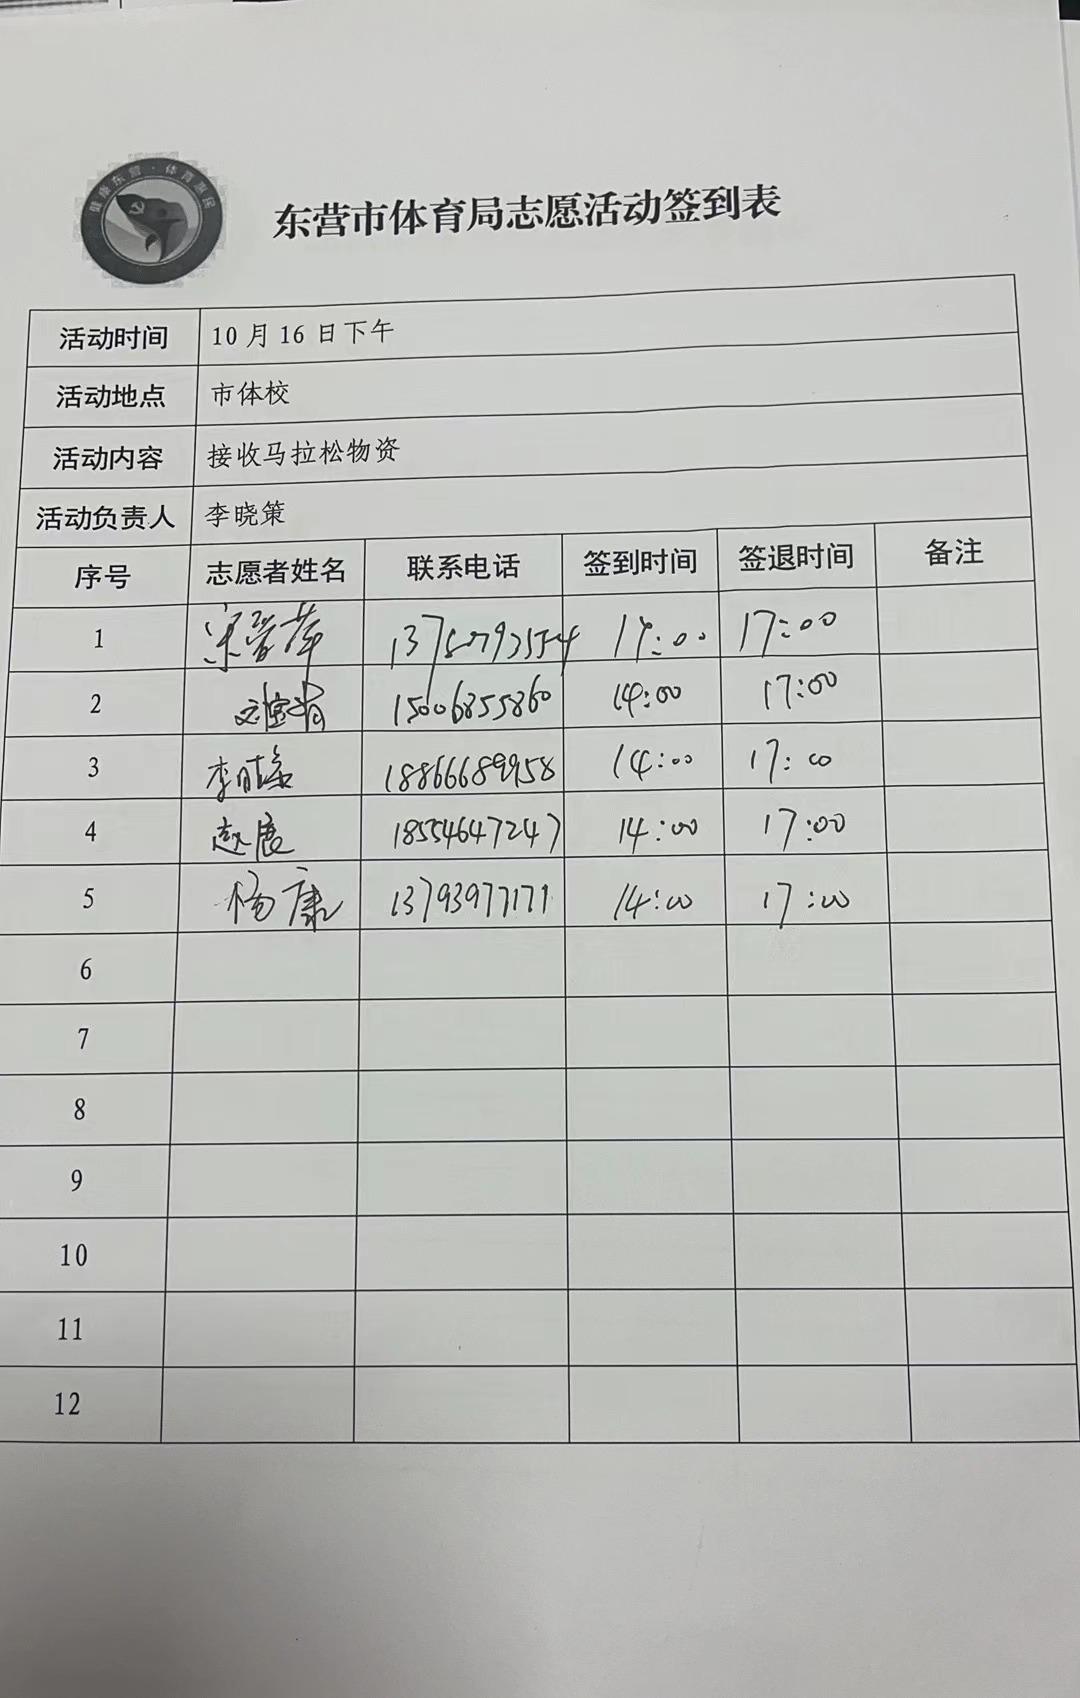 健康东营·体育惠民
东营市体育局志愿活动签到表
活动时间 10月16日下午
活动地点 市体校
活动内容 接收马拉松物资
活动负责人 李晓策
序号 志愿者姓名 联系电话 签到时间 签退时间 备注
1 14:00 17:00
2 15006855860 14:00 17:00
3 18866689958 14:00 17:00
4 赵展 18554647247 14:00 17:00
5 杨康 13793977171 14:00 17:00
6
7
8
9
10
11
12